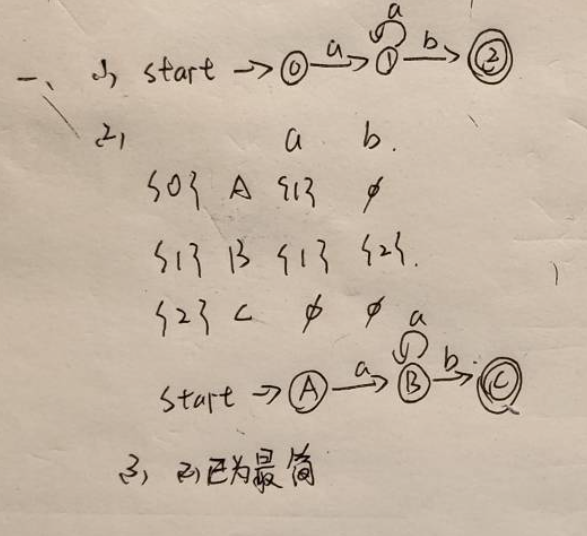 一、1) start → 0 a→ 1 a b→ 2
2) a b.
{0} A {1} ϕ
{1} B {1} {2}.
{2} C ϕ ϕ
start → A a→ B a b→ C
3) 2)已为最简